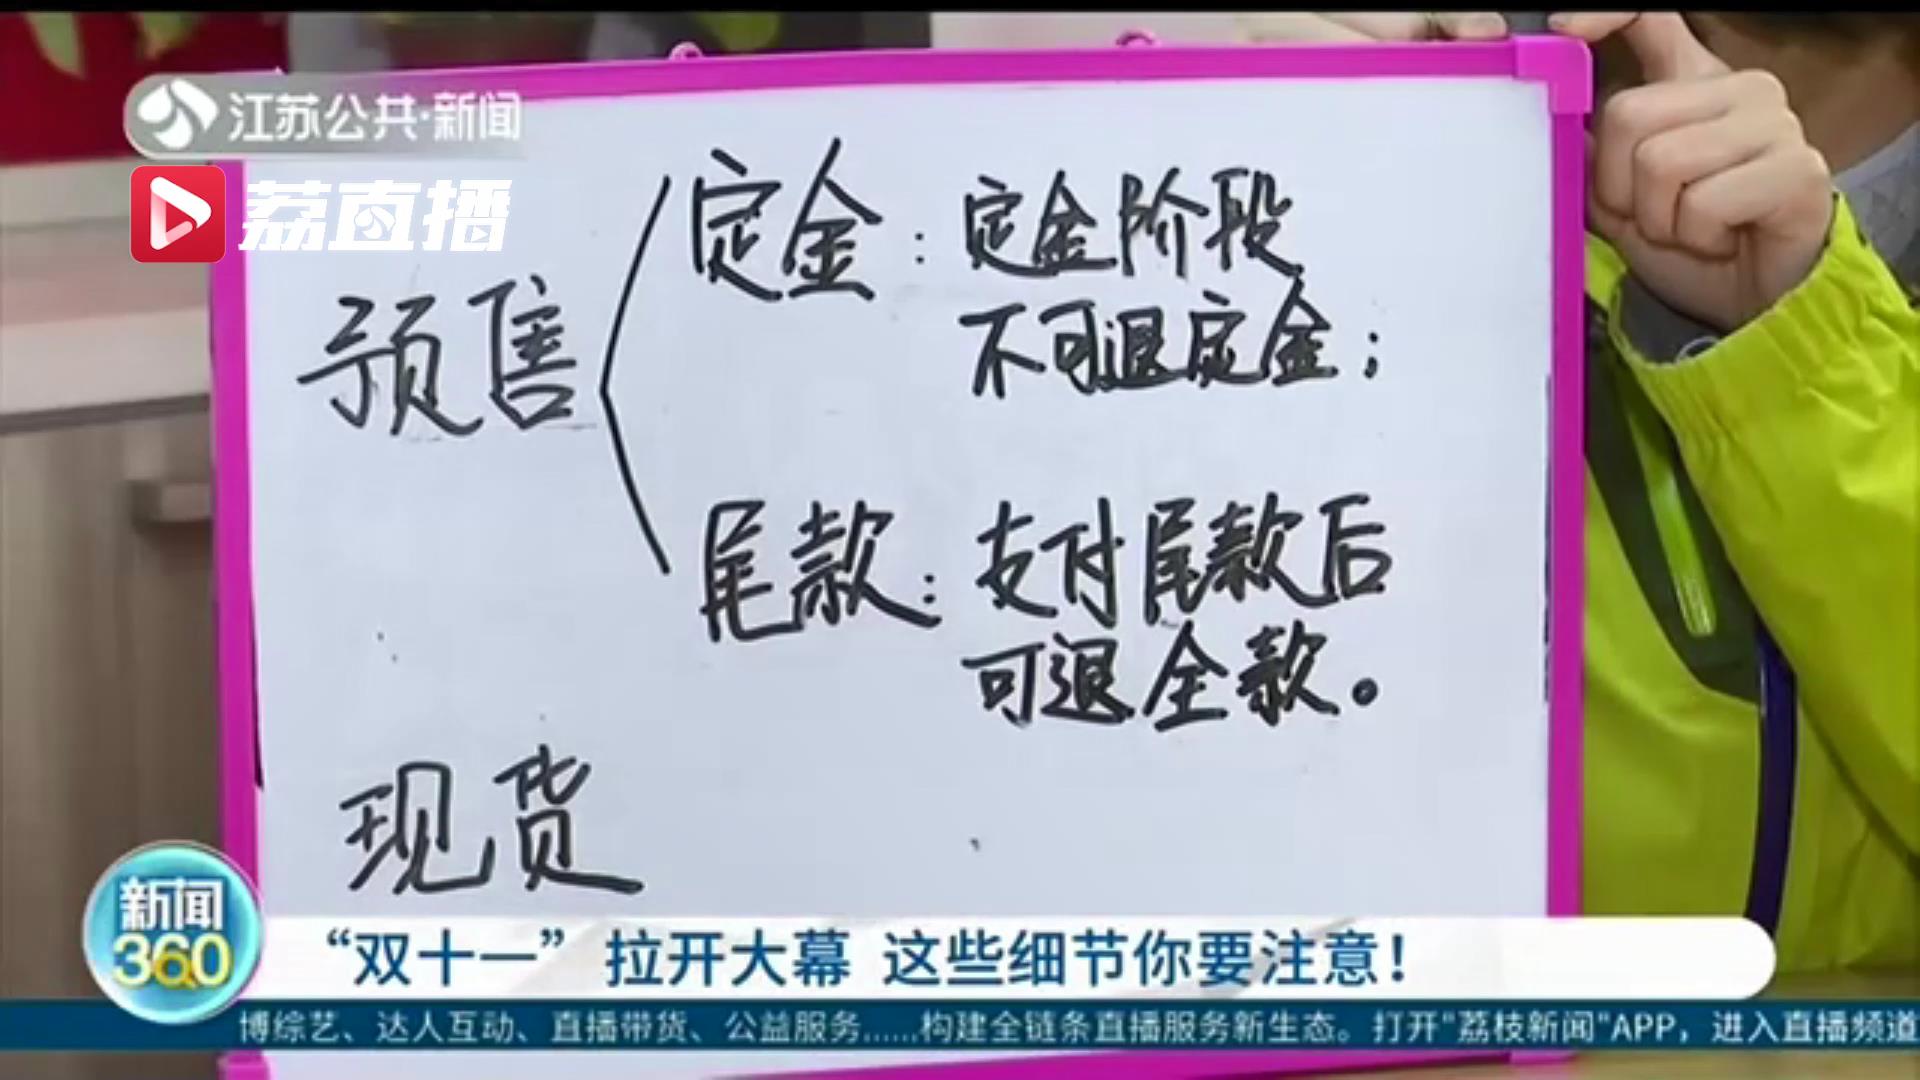 江苏公共·新闻
荔直播
预售
定金：定金阶段
不可退定金；
尾款：支付尾款后
可退全款。
现货
新闻
360
“双十一”拉开大幕 这些细节你要注意！
博综艺、达人互动、直播带货、公益服务......构建全链条直播服务新生态。打开"荔枝新闻"APP，进入直播频道